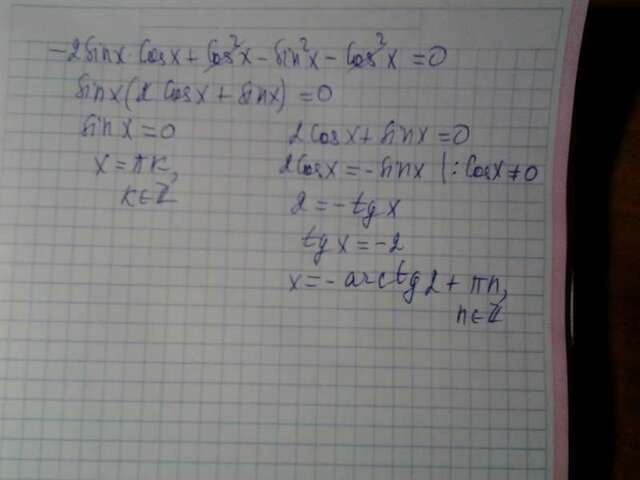 -2sinx·cosx+cos²x-sin²x-cos²x=0
sinx(2cosx+sinx)=0
sinx=0
x=πk,
k∈Z
2cosx+sinx=0
2cosx=-sinx |:cosx≠0
2=-tgx
tgx=-2
x=-arctg2+πn,
n∈Z